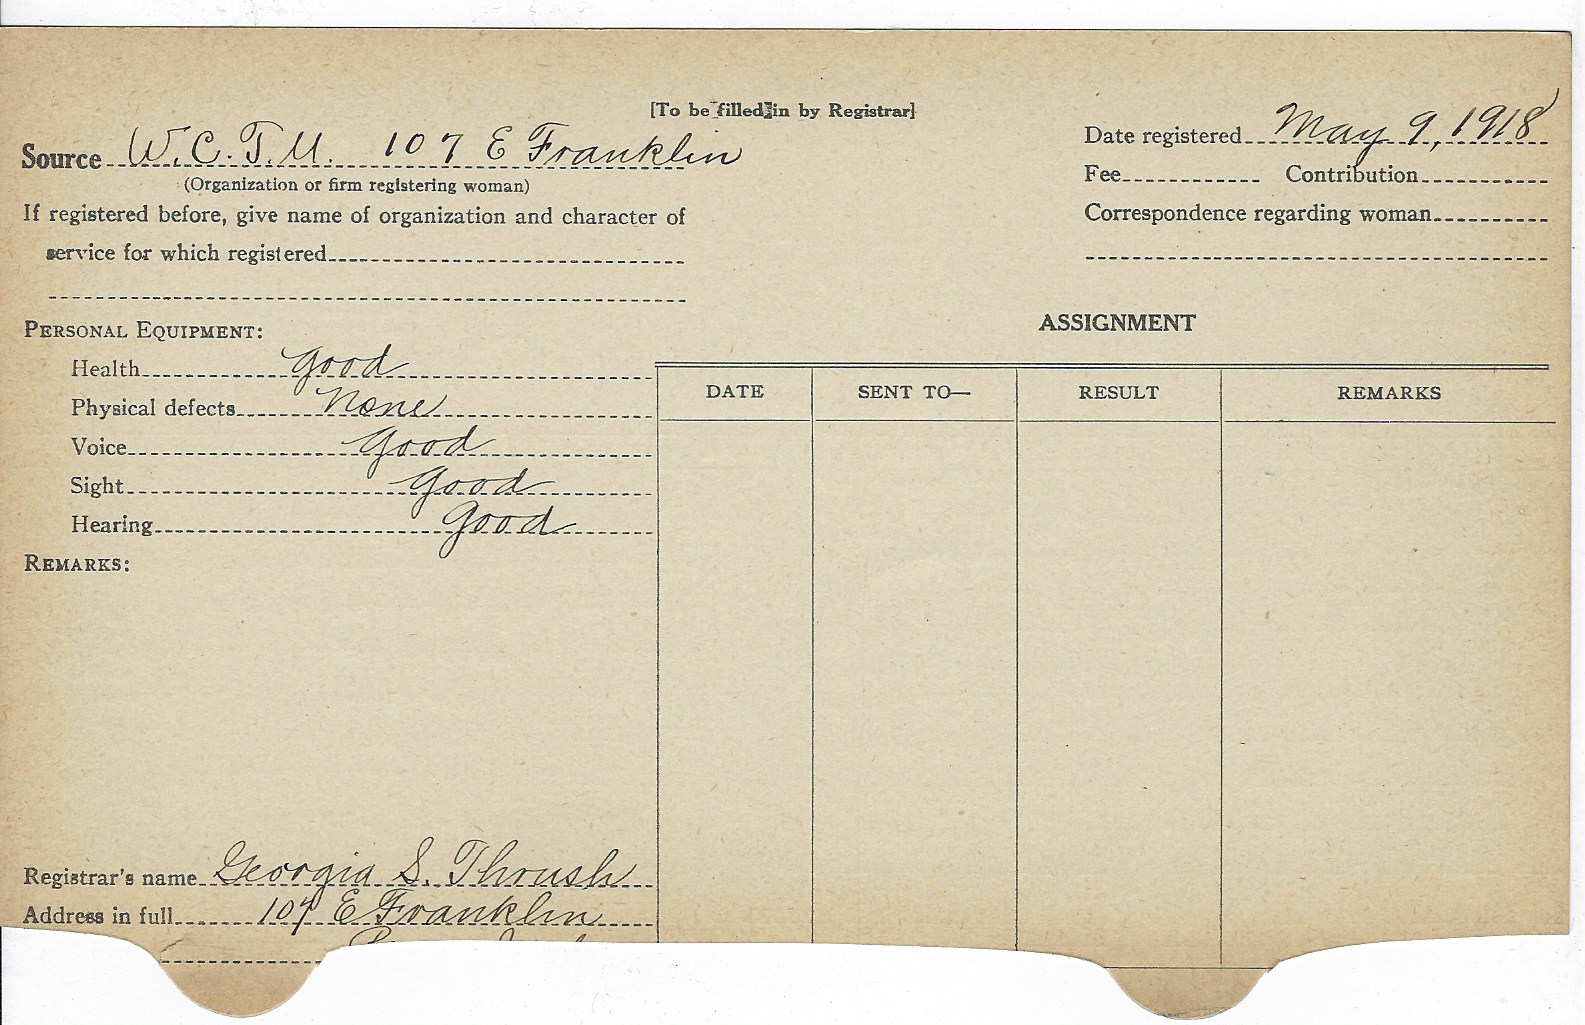 [To be filled in by Registrar]
Source W.C.T.U. 107 E Franklin
(Organization or firm registering woman)
If registered before, give name of organization and character of
service for which registered
Date registered May 9, 1918
Fee Contribution
Correspondence regarding woman
PERSONAL EQUIPMENT:
Health good
Physical defects None
Voice good
Sight good
Hearing good
REMARKS:
ASSIGNMENT
DATE SENT TO— RESULT REMARKS
Registrar's name Georgia S. Thrush
Address in full 107 E Franklin